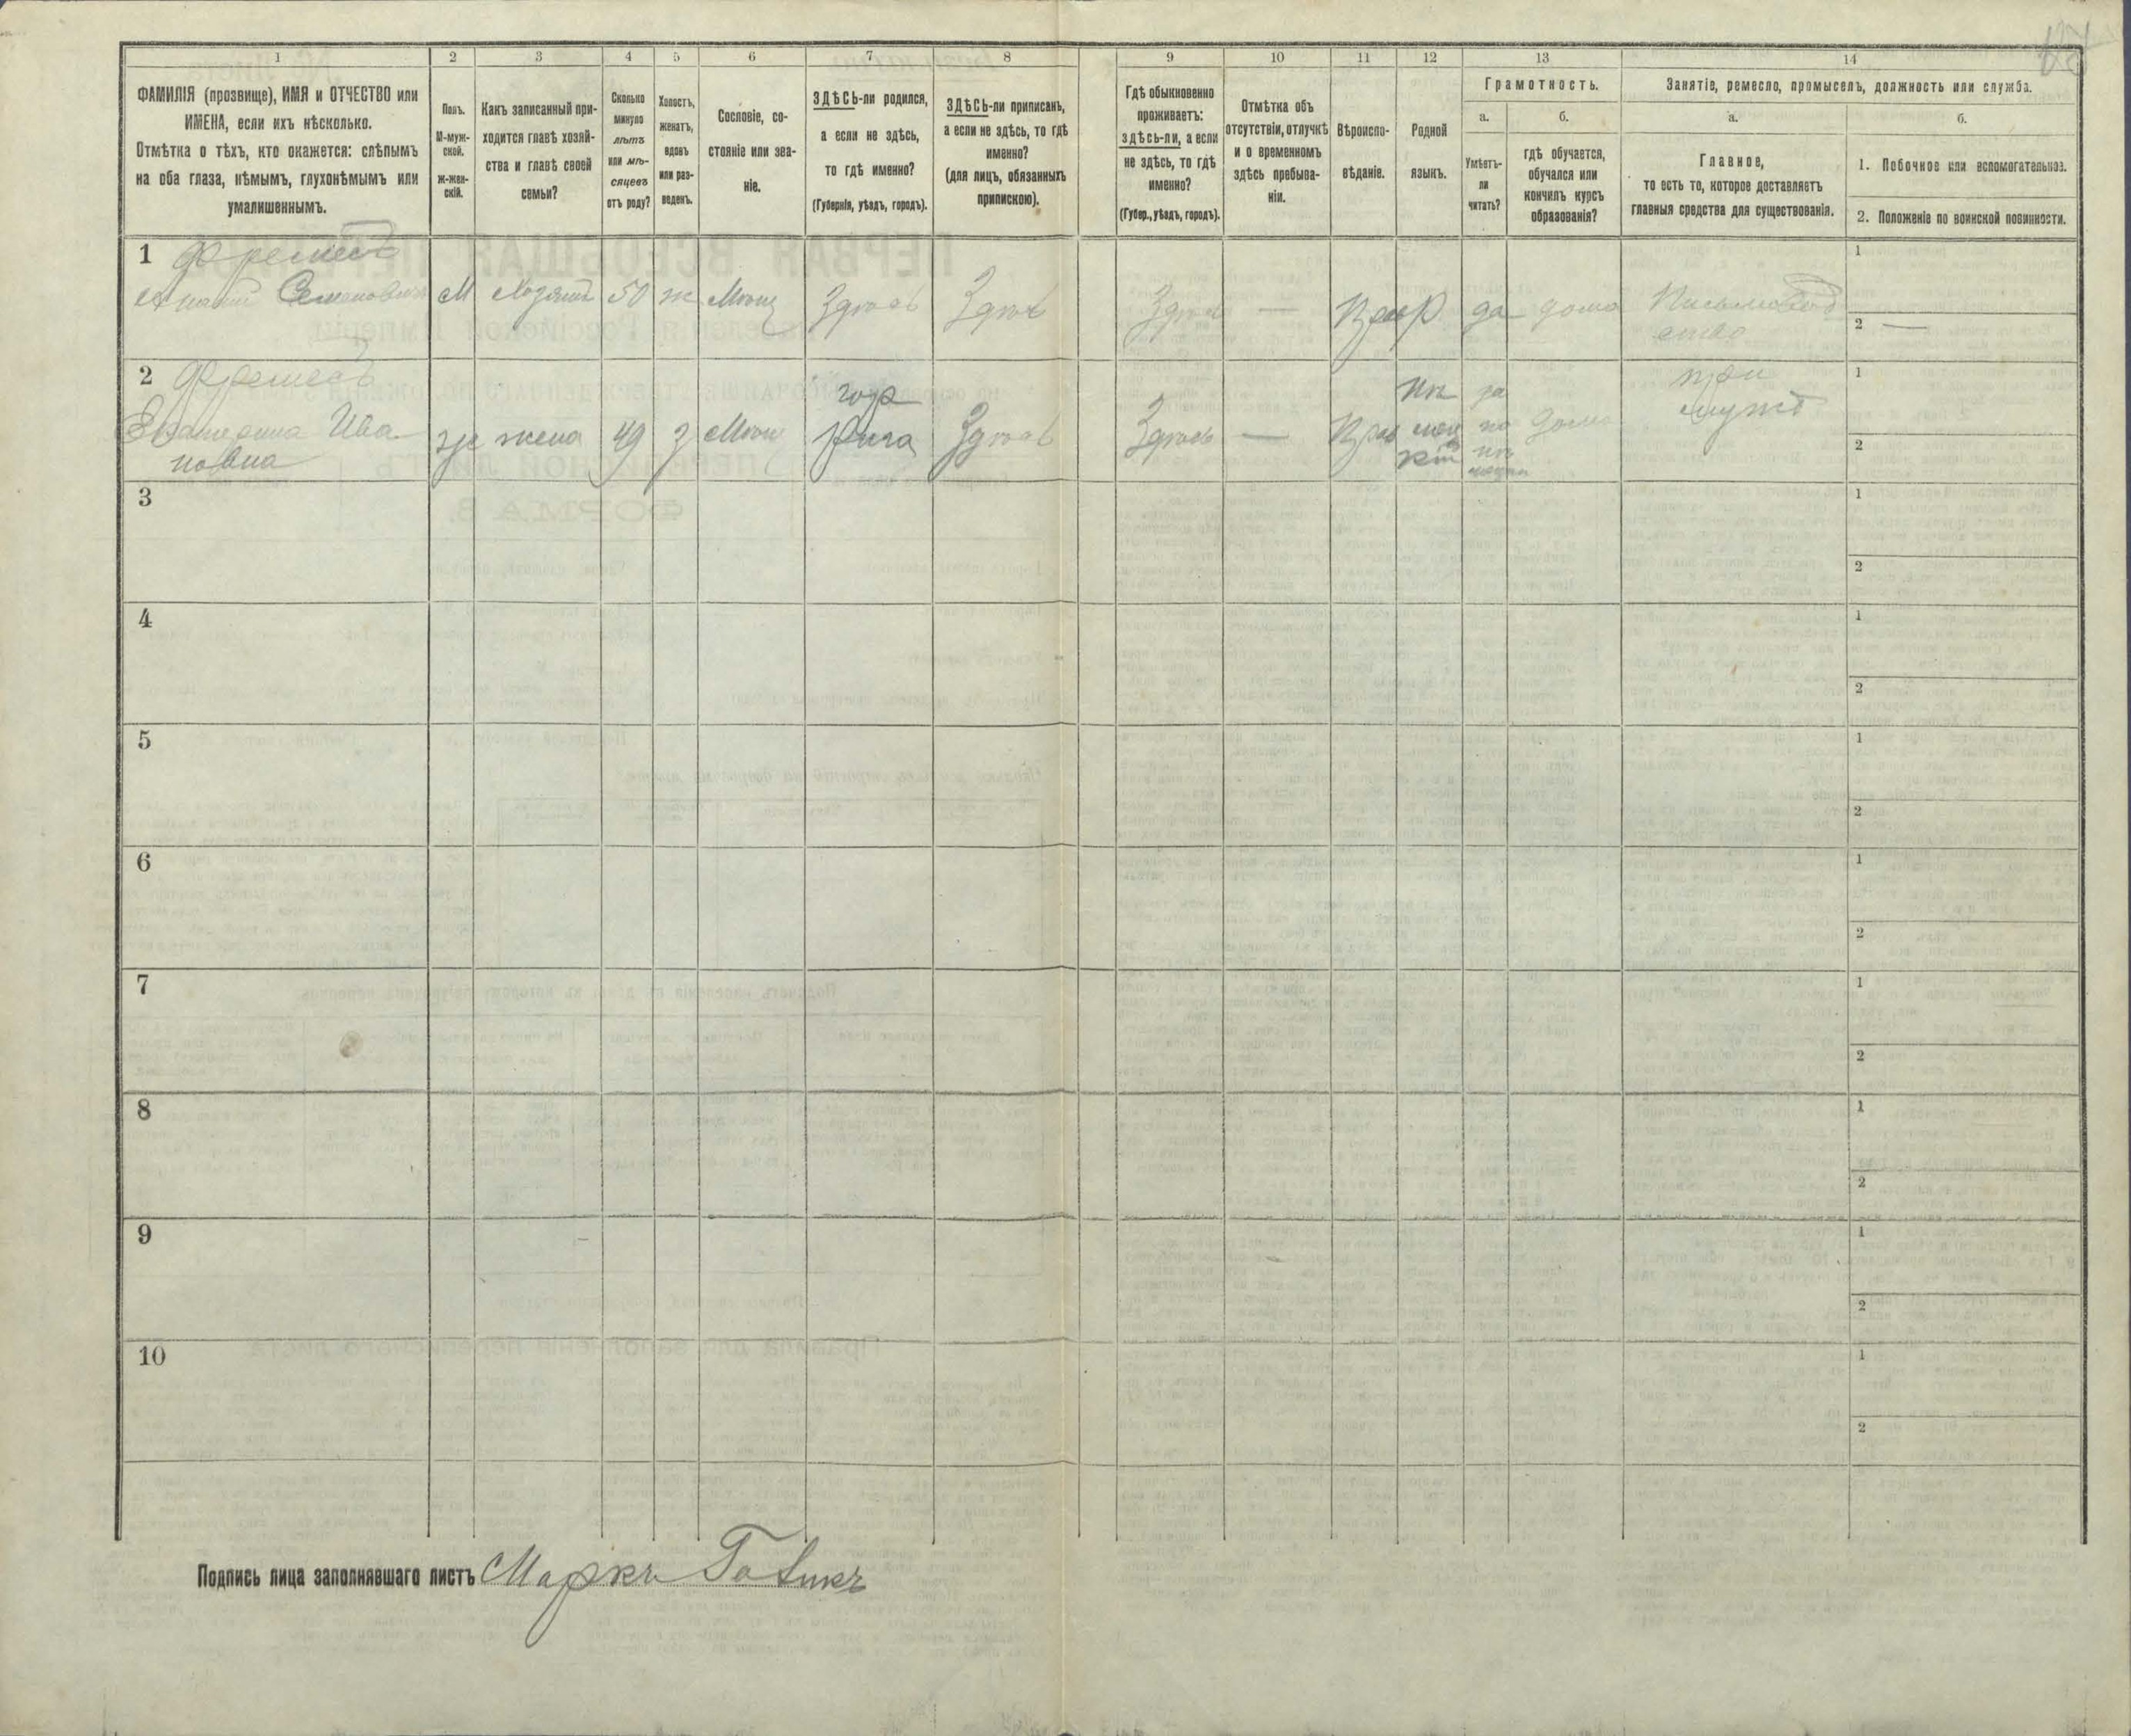 1 2 3 4 5 6 7 8 9 10 11 12 13 14
ФАМИЛІЯ (прозвище), ИМЯ и ОТЧЕСТВО или
ИМЕНА, если ихъ нѣсколько.
Отмѣтка о тѣхъ, кто окажется: слѣпымъ
на оба глаза, нѣмымъ, глухонѣмымъ или
умалишеннымъ.
Полъ.
М-муж-
ской.
Ж-жен-
скій.
Какъ записанный при-
ходится главѣ хозяй-
ства и главѣ своей
семьи?
Сколько
минуло
лѣтъ
или мѣ-
сяцевъ
отъ роду?
Холостъ,
женатъ,
вдовъ
или раз-
веденъ.
Сословіе, со-
стояніе или зва-
ніе.
ЗДѢСЬ-ли родился,
а если не здѣсь,
то гдѣ именно?
(Губернія, уѣздъ, городъ).
ЗДѢСЬ-ли приписанъ,
а если не здѣсь, то гдѣ
именно?
(для лицъ, обязанныхъ
припискою).
Гдѣ обыкновенно
проживаетъ:
здѣсь-ли, а если
не здѣсь, то гдѣ
именно?
(Губер., уѣздъ, городъ).
Отмѣтка объ
отсутствіи, отлучкѣ
и о временномъ
здѣсь пребыва-
ніи.
Вѣроиспо-
вѣданіе.
Родной
языкъ.
Грамотность.
а.
Умѣетъ-
ли
читать?
б.
гдѣ обучается,
обучался или
кончилъ курсъ
образованія?
Занятіе, ремесло, промыселъ, должность или служба.
а.
Главное,
то есть то, которое доставляетъ
главныя средства для существованія.
б.
1. Побочное или вспомогательное.
2. Положеніе по воинской повинности.
1
Семеновичъ М Хозяинъ 50 ж Мѣщ Здѣсь Здѣсь Здѣсь — Прав Р да дома Письмовод
ство
1
2 —
2
Екатерина Ива
новна
ж жена 49 з Мѣщ
гор
Рига Здѣсь Здѣсь — Прав
нѣ
мец
кій
да
по
нѣ
мецки
дома
при
мужѣ
1
2
3
1
2
4
1
2
5
1
2
6
1
2
7
1
2
8
1
2
9
1
2
10
1
2
Подпись лица заполнявшаго листъ Маркъ